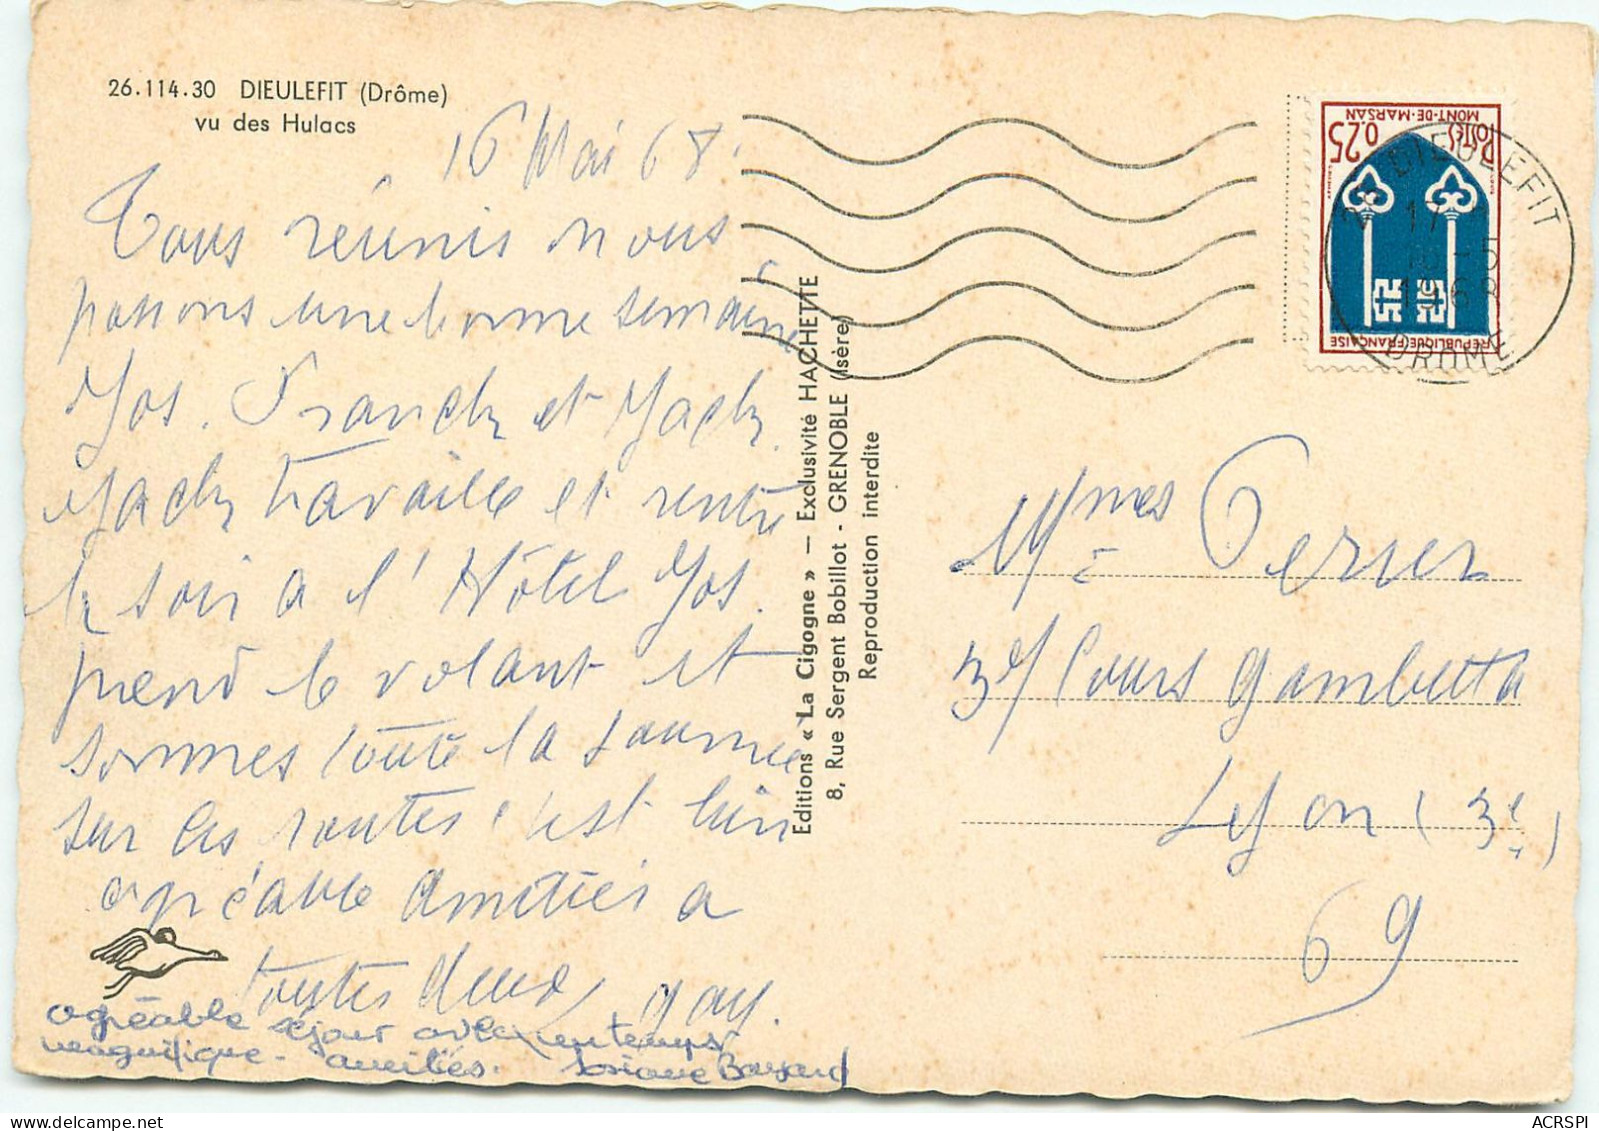 26.114.30 DIEULEFIT (Drôme)
vu des Hulacs
16 Mai 68.
Tous réunis nous
passons une bonne semaine
Jos. Franck et Jacky
Jacky travaille et rentre
le soir a l'Hôtel Jos.
prend le volant et
sommes toute la journée
sur les routes c'est bien
agréable amitiés a
toutes deux
agréable séjour avec un temps
magnifique - amitiés.
Editions « La Cigogne » — Exclusivité HACHETTE
8, Rue Sergent Bobillot - GRENOBLE (Isère)
Reproduction interdite
0,25 POSTES
MONT-DE-MARSAN
REPUBLIQUE FRANÇAISE
DIEULEFIT
17
-5
1968
DROME
Mmes Perier
Cours Gambetta
Lyon (3e)
69
ACRSPI